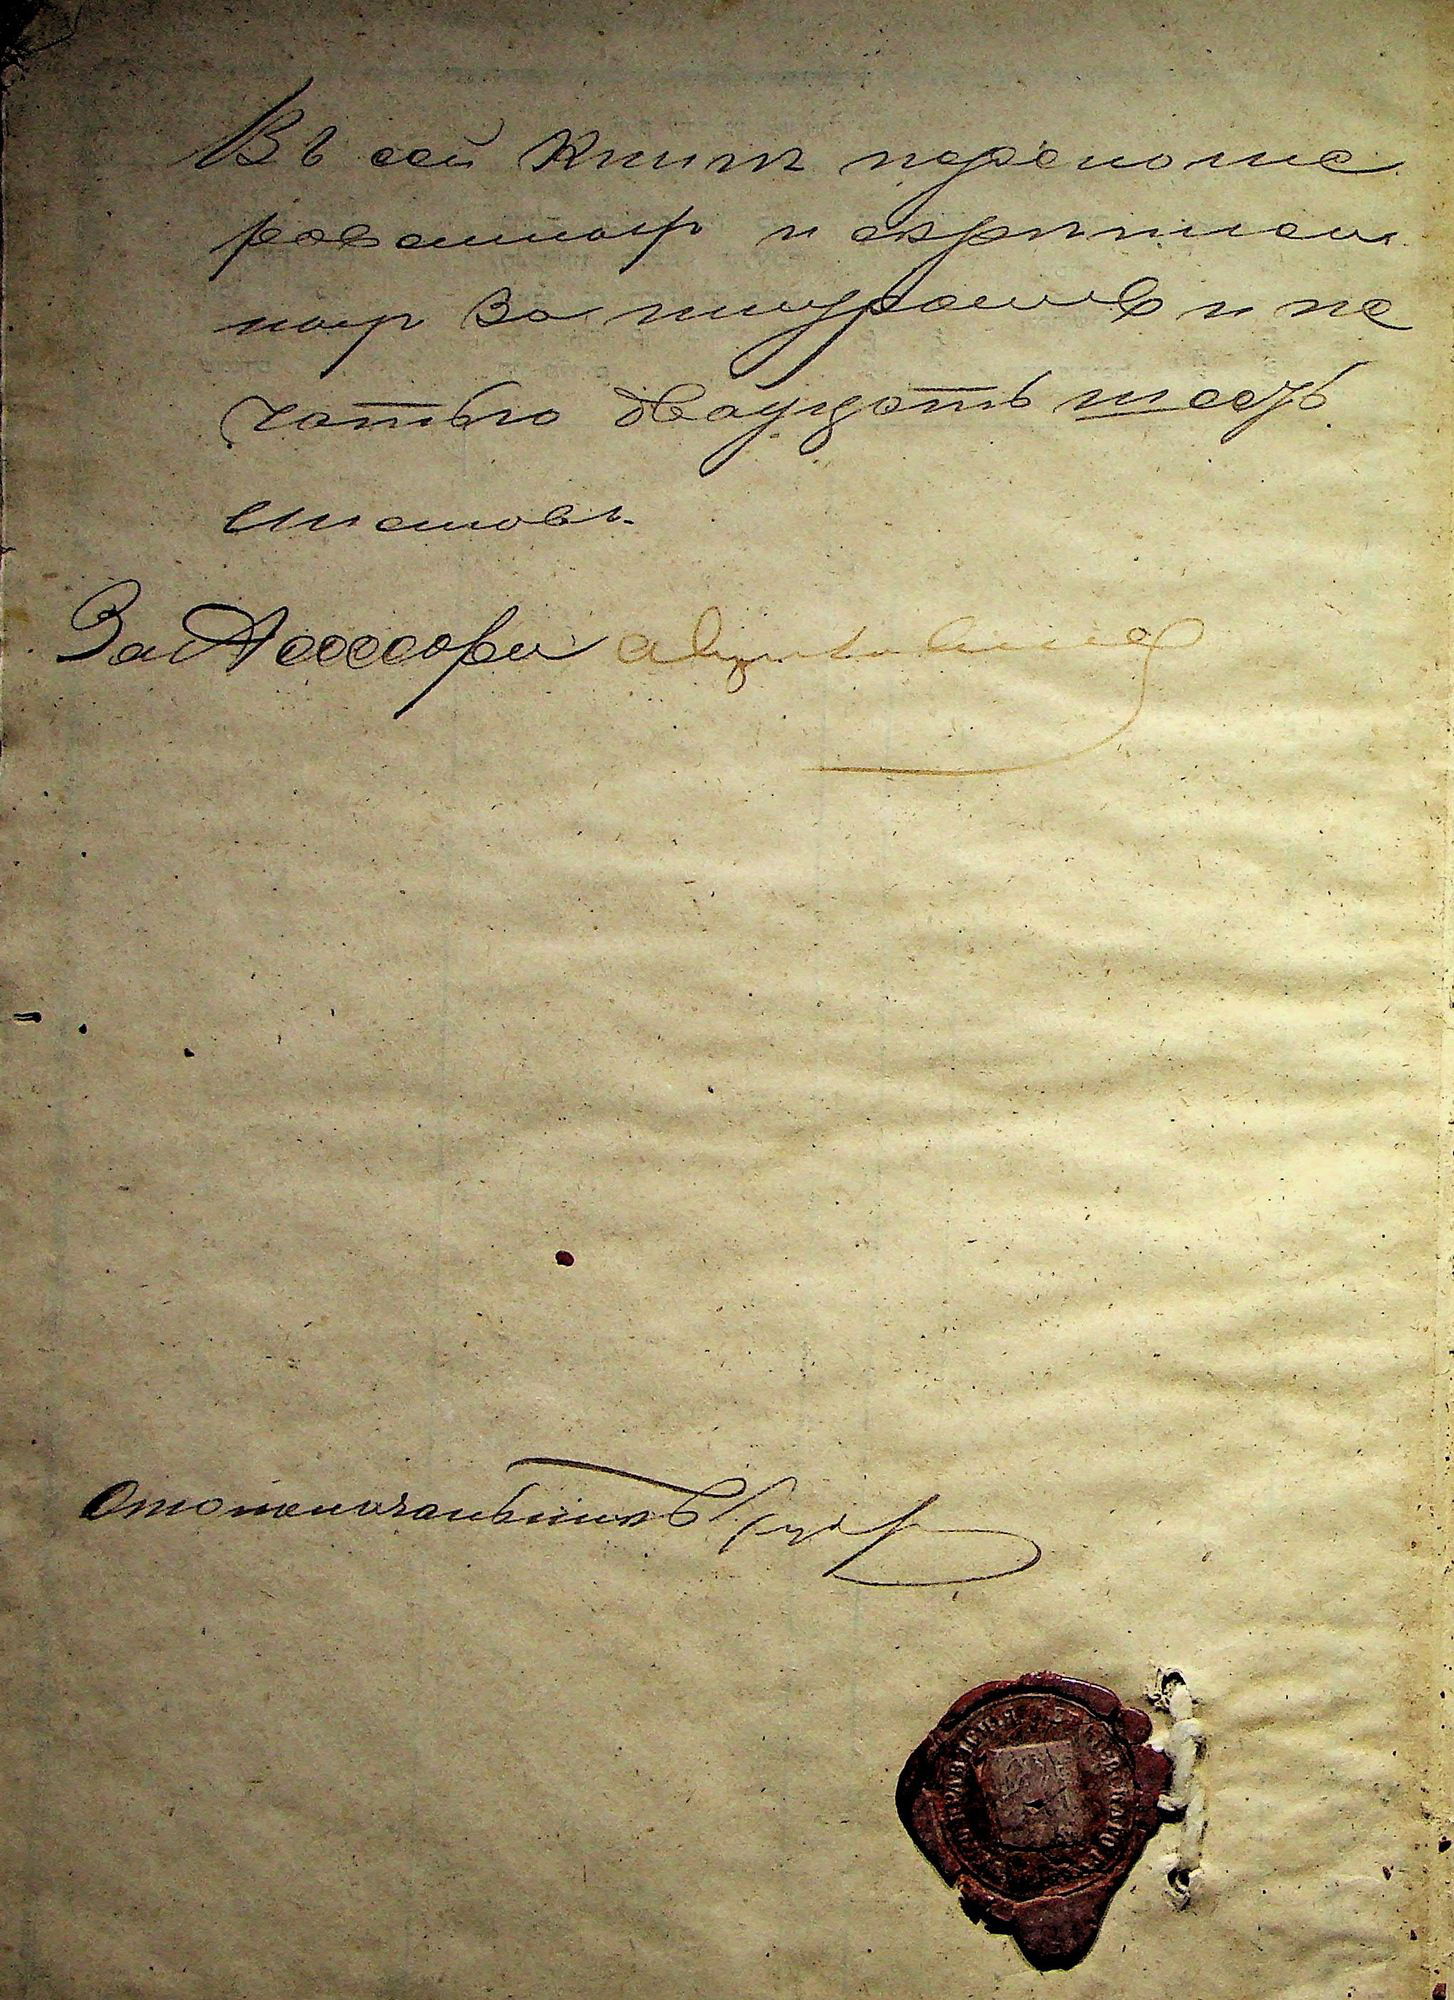 Въ сей книгѣ перенуме
рованныхъ и скрѣплен
ныхъ за шнуромъ и пе
чатью двадцать шесть
листовъ.
За Ассесора
Столоначальникъ